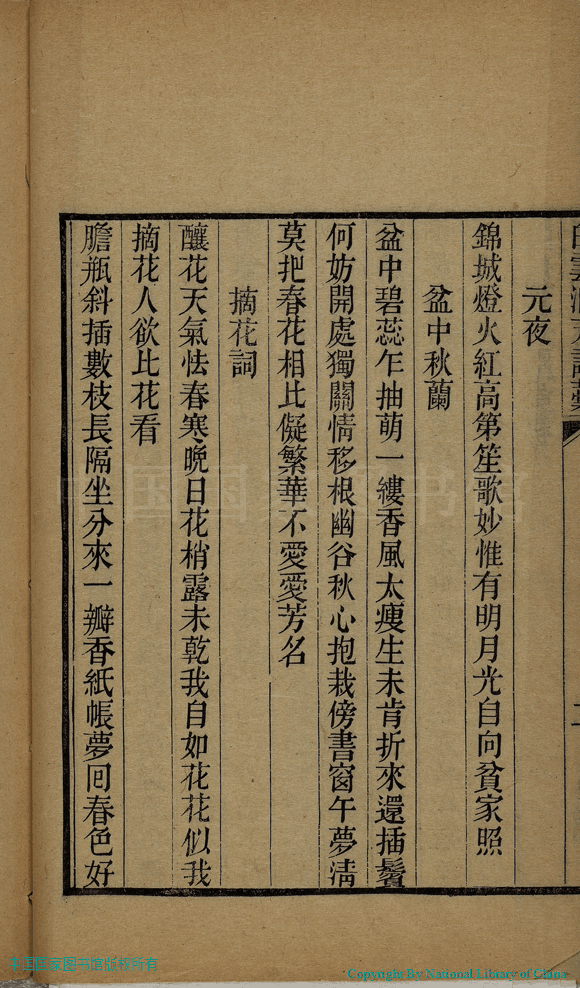 元夜
錦城燈火紅高第笙歌妙惟有明月光自向貧家照
盆中秋蘭
盆中碧蕊乍抽萌一縷香風太瘦生未肯折來還插鬢
何妨開處獨關情移根幽谷秋心抱栽傍書窗午夢清
莫把春花相比儗繁華不愛愛芳名
摘花詞
釀花天氣怯春寒晚日花梢露未乾我自如花花似我
摘花人欲比花看
膽瓶斜插數枝長隔坐分來一瓣香紙帳夢回春色好
中国国家图书馆版权所有
Copyright By National Library of China